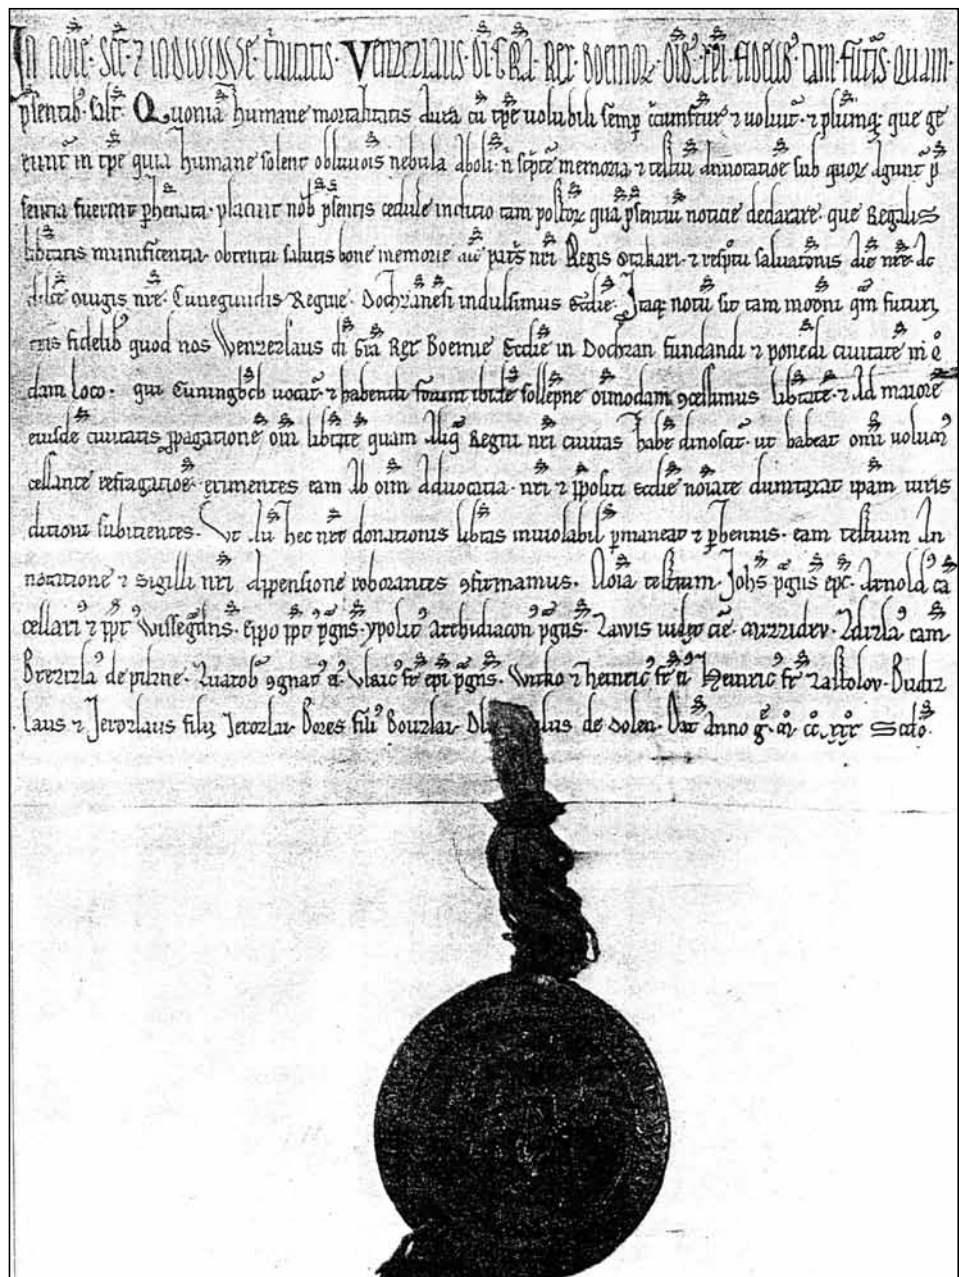 In noīe · Scē · ⁊ individue · trinitatis · Venzezlaus · di · Gr̄a · Rex · Boemoꝝ · oīb; · xp̄i · fidelib; · tam · futis · quam ·
p̄sentib; · salt̄ · Quoniā humane mortalitatis dura cū tp̄e volubili semꝑ ⁊ volvit̄ · ⁊ plūmq; que ge
runt̄ in tp̄e quia humane solent oblivōis nebula aboli · n̄ sc̄pte memoria ⁊ testiū annotatiōe sub quoꝝ agunt̄ p̄
sentia fuerint ꝑhenata · placuit nob̄ p̄sentis cedule indicio tam posteꝝ quā p̄sentiū noticie declarare · que Regalis
lib̄tatis munificentia · obtentu salutis bone memorie pat̄s nr̄i Regis Otakari · ⁊ resp̄tu salvatōnis aīe nr̄e · Ac
dilc̄e ̄iugis nr̄e · Cunegundis Regine · Dochzāneſi indulsimus Ecc̄lie · Itaq; notū sit tam mod̄ni q̄m futuri
tp̄is fidelib; quod nos Wenzezlaus di gr̄a Rex Boemie Ecc̄lie in Dochzan fundandi ⁊ ponēdi civitatē in q̊
dam loco · qui Cuningbech vocat̄ · ⁊ habendi forum ibidē sollepne oīmodam ꝯcessimus lib̄tatē · ⁊ Ad maiorē
eiusdē civitatis ꝓpagationē oīm lib̄tatē quam aliq̄ Regni nr̄i civitas habē dinoscit̄ · ut habeat om̄i
cessante refragatiōe · eximentes eam ab oīm advocatia · nr̄i ⁊ p̄positi Ecc̄lie noīate dumtaxat ipam iuris
ditioni subicientes · Ut aū hec nr̄e donationis lib̄tas inviolabil̄ ꝑmaneat ⁊ ꝑhennis · eam testium An
notatione ⁊ Sigilli nr̄i appensione roborantes ꝯfirmamus · Noīa testium · Joh̄s p̄gn̄s epc̄ · Arnold᾿ cā
cellari᾿ ⁊ p̄p̄t᾿ Wissegdn̄s · Eppo p̄p̄t᾿ p̄gn̄s · ypolit᾿ archidiacon᾿ p̄gn̄s · Zawis iudex Zdizla᾿ cam
Brezizla᾿ de pilzne · ꝯgnat᾿ ei᾿ Vlric᾿ fr̄ ep̄i p̄gn̄s · Witko ⁊ heinric᾿ fr̄ ei᾿ Heinric᾿ fr̄ zastolov · Budiz
laus ⁊ Jerozlaus filii Jerozlai · Bores fili᾿ Bovzlai · de Dolen · Dat̄ Anno gr̄e · m̊ · cc̊ · xxx̊ · Sc̄do ·